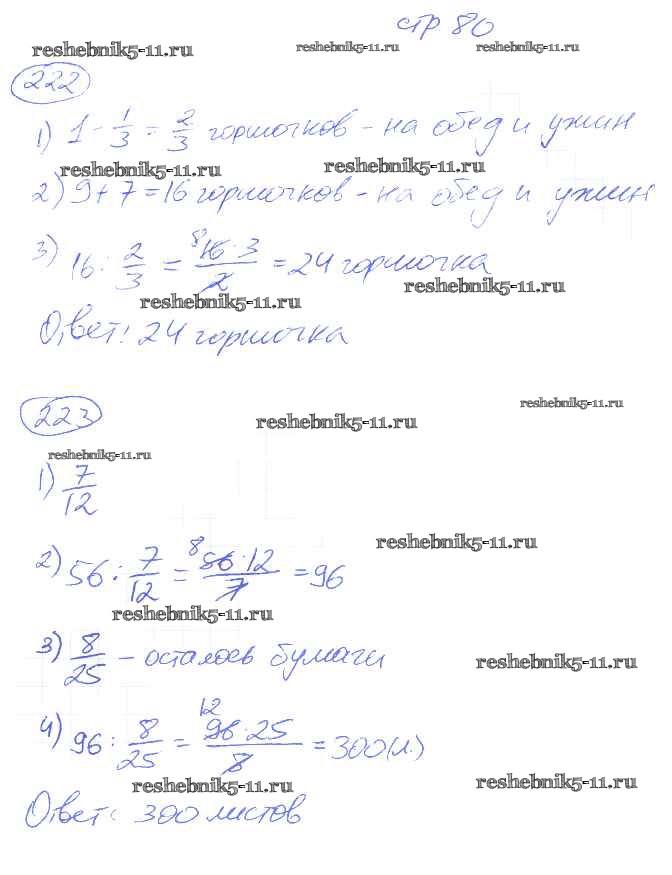 стр 80
reshebnik5-11.ru reshebnik5-11.ru reshebnik5-11.ru
222
1) 1 - 1/3 = 2/3 гормочков - на обед и ужин
reshebnik5-11.ru reshebnik5-11.ru
2) 9 + 7 = 16 гормочков - на обед и ужин
3) 16 : 2/3 = 8 16 · 3/2 = 24 гормочка
reshebnik5-11.ru reshebnik5-11.ru
Ответ: 24 гормочка
reshebnik5-11.ru
223
reshebnik5-11.ru
reshebnik5-11.ru
1) 7/12
reshebnik5-11.ru
2) 56 : 7/12 = 8 56 · 12/7 = 96
reshebnik5-11.ru
3) 8/25 - осталось бумаги
reshebnik5-11.ru
4) 96 : 8/25 = 12 96 · 25/8 = 300 (л.)
reshebnik5-11.ru reshebnik5-11.ru
Ответ: 300 листов